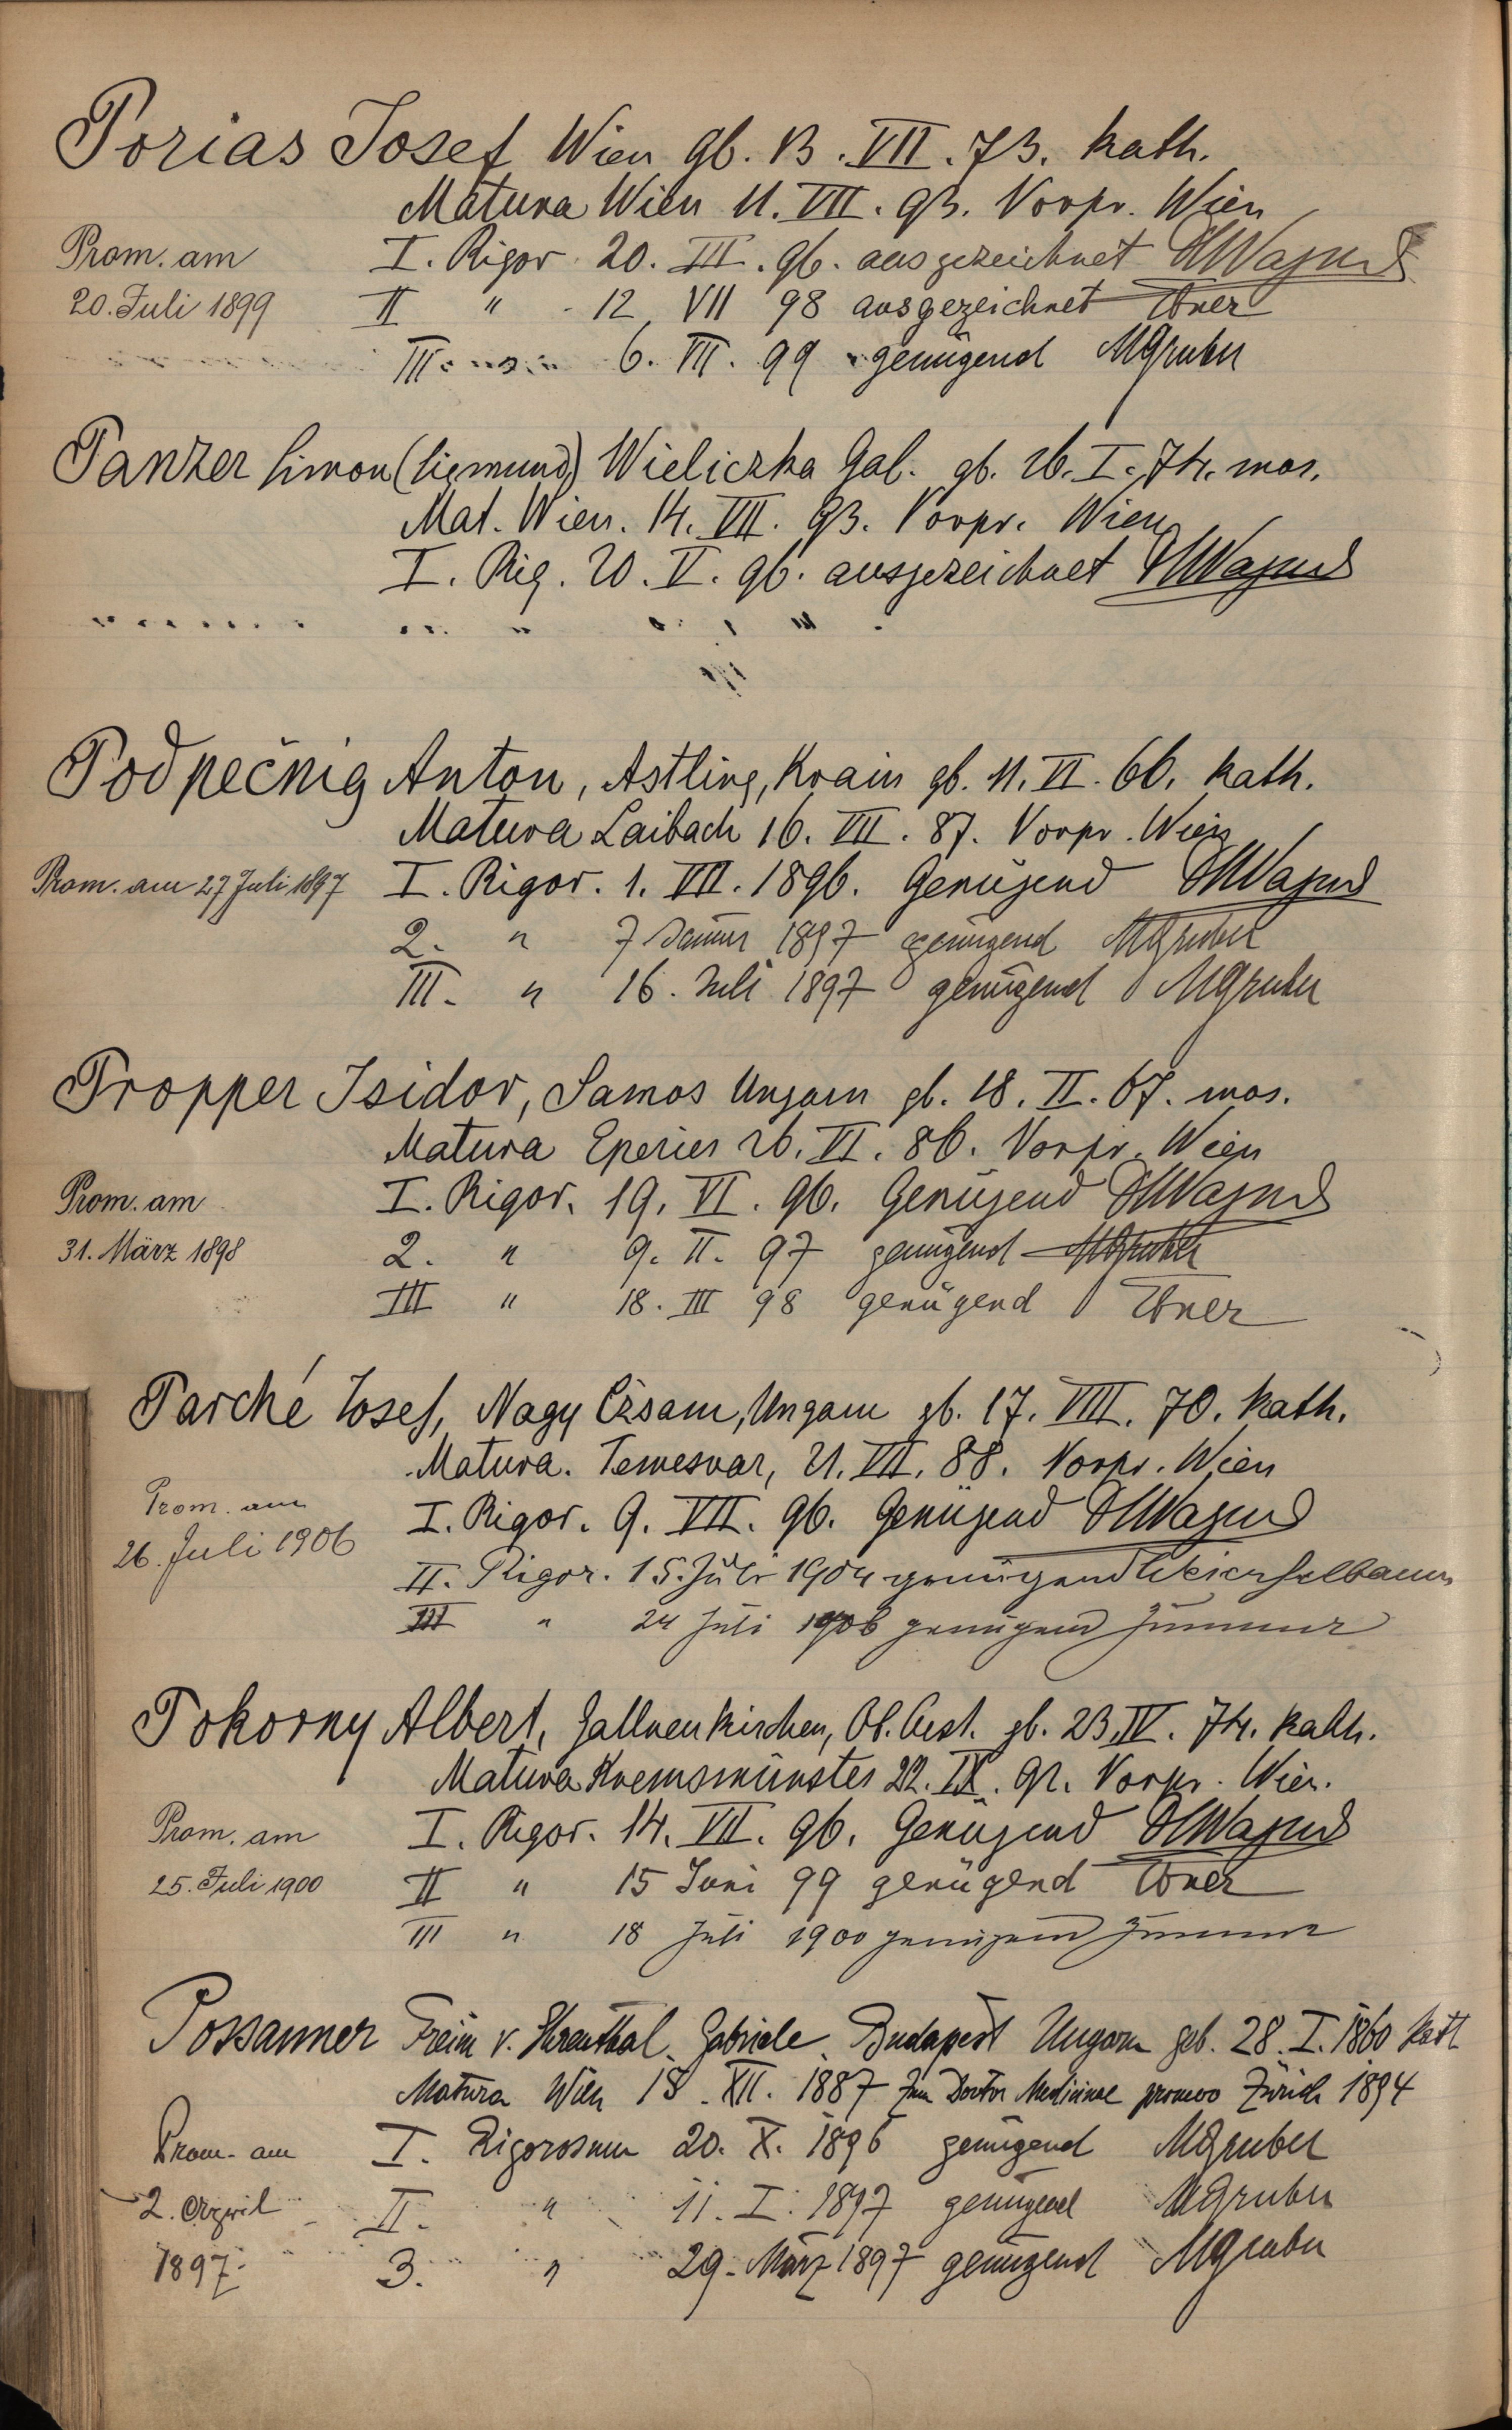 Porias Josef Wien gb. 13. VII. 73. kath.
Matura Wien 11. VII. 93. Vorpr. Wien
Prom. am I. Rigor. 20. III. 96. ausgezeichnet
20. Juli 1899 II " 12 VII 98 ausgezeichnet Ebner
III. 6. VII. 99 genügend MGruber
Panzer Simon (Sigmund) Wieliczka Gal. gb. 26. I. 74. mos.
Mat. Wien. 14. VII. 93. Vorpr. Wien
I. Rig. 20. V. 96. ausgezeichnet
Podpečnig Anton, Astling, Krain gb. 11. VI. 66. kath.
Matura Laibach 16. VII. 87. Vorpr. Wien
Prom. am 27 Juli 1897 I. Rigor. 1. VII. 1896. Genügend
2. " 7 Januar 1897 genügend MGruber
III. " 16. Juli 1897 genügend MGruber
Propper Isidor, Samos Ungarn gb. 18. II. 67. mos.
Matura Eperies 26. VI. 86. Vorpr. Wien
Prom. am I. Rigor. 19. VI. 96. Genügend
31. März 1898 2. " 9. II. 97 genügend MGruber
III " 18. III 98 genügend Ebner
Parché Josef, Nagy Ungarn gb. 17. VIII. 70. kath.
Matura. Temesvar, 21. VII. 88. Vorpr. Wien
Prom. am I. Rigor. 9. VII. 96. Genügend
26. Juli 1906 II. Rigor. 15. Juli 1904 genügend Weichselbaum
III " 24 Juli 1906 genügend
Pokorny Albert, Gallneukirchen, Ob. Oest. gb. 23. IV. 74. kath.
Matura Kremsmünster 22. IX. 92. Vorpr. Wien.
Prom. am I. Rigor. 14. VII. 96. Genügend
25. Juli 1900 II " 15 Juni 99 genügend Ebner
III " 18 Juli 1900 genügend
Possanner Freiin v. Ehrenthal Gabriele Budapest Ungarn geb. 28. I. 1860 kath
Matura Wien 18. XII. 1887 zum Doctor Medicinae promov Zürich 1894
Prom. am I. Rigorosum 20. X. 1896 genügend MGruber
2. April II. " 11. I. 1897 genügend MGruber
1897. 3. " 29. März 1897 genügend MGruber